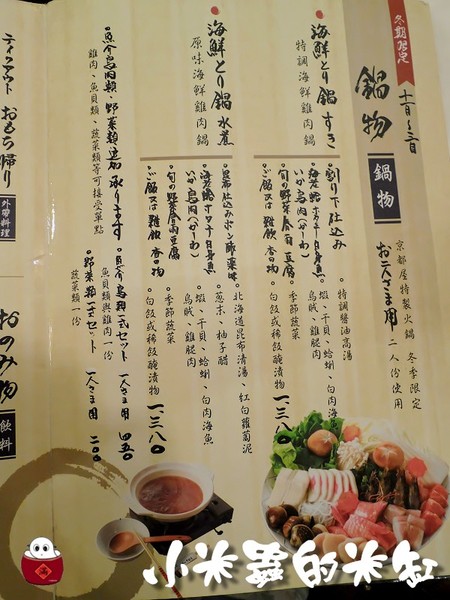 冬期限定
鍋物
十一月~三月
鍋物
京都屋特製火鍋 冬季限定
お二人さま用 二人份使用
海鮮とり鍋 すき
特調海鮮雞肉鍋
割り下仕込み
旬の野菜 春雨 豆腐
ご飯又は雜飲 香の物
特調醬油高湯
蝦、干貝、蛤蜊、白肉海
烏賊、雞腿肉
季節蔬菜
白飯或稀飯醃漬物
一、三八〇
海鮮とり鍋 水煮
原味海鮮雞肉鍋
旬の野菜 春雨 豆腐
ご飯又は雜飲 香の物
北海道昆布清湯、紅白蘿蔔泥
蔥末、柚子醋
蝦、干貝、蛤蜊、白肉海魚
烏賊、雞腿肉
季節蔬菜
白飯或稀飯醃漬物
一、三八〇
魚介鳥肉類、野菜類追加 承ります
雞肉、魚貝類、蔬菜類等可接受單點
魚介鳥類一式セット 一人さま用 四五〇
魚貝類與雞肉一份
野菜類一式セット 一人さま用 二〇〇
蔬菜類一份
ティクアウト おもち帰り
外帶料理
おのみ物
飲料
小米蟲的米缸